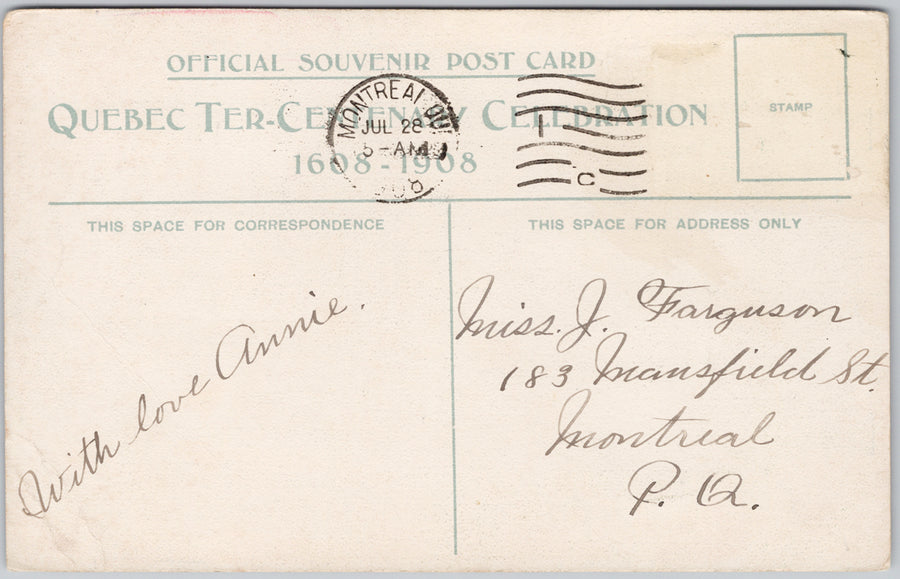 OFFICIAL SOUVENIR POST CARD
QUEBEC TER-CENTENARY CELEBRATION
1608-1908
MONTREAL QUE
JUL 28
5-AM
908
C
STAMP
THIS SPACE FOR CORRESPONDENCE
THIS SPACE FOR ADDRESS ONLY
With love Annie.
Miss. J. Farguson
183 Mansfield St.
Montreal
P. Q.